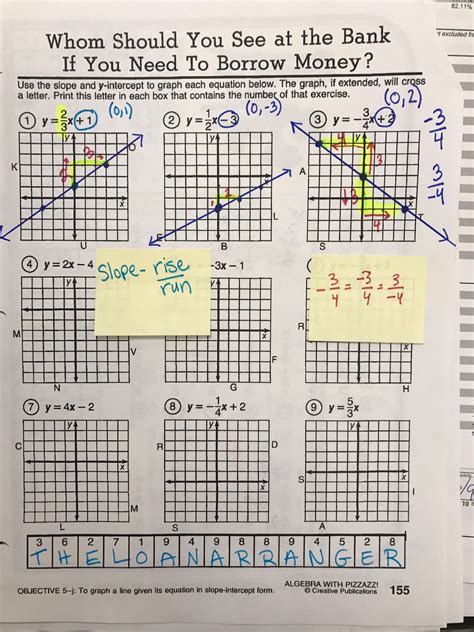 82.11%
Whom Should You See at the Bank
If You Need To Borrow Money?
Use the slope and y-intercept to graph each equation below. The graph, if extended, will cross
a letter. Print this letter in each box that contains the number of that exercise.
(0,1) (0,-3) (0,2)
① y = 2/3x + 1 ② y = 1/2x − 3 ③ y = −3/4x + 2
-3/4
3/-4
y y y
3 4 3
K O 2 A
2 1 3
x x x
4 T
E L
U B S
④ y = 2x − 4 -3x − 1
Slope- rise/run
-3/4 = -3/4 = 3/-4
y
M R
x
V F
N G H
⑦ y = 4x − 2 ⑧ y = −1/4x + 2 ⑨ y = 5/3x
y y y
C R D
x x x
S
M I
L S A
3 6 2 7 1 9 4 9 8 8 4 9 5 2 8
T H E L O A N A R R A N G E R
OBJECTIVE 5–j: To graph a line given its equation in slope-intercept form.
ALGEBRA WITH PIZZAZZ!
© Creative Publications 155